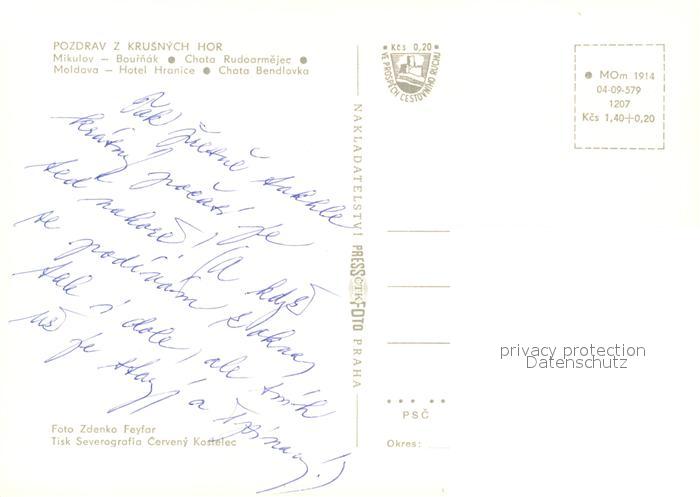 POZDRAV Z KRUŠNÝCH HOR
Mikulov – Bouřňák ● Chata Rudoarmějec ●
Moldava – Hotel Hranice ● Chata Bendlovka
● Kčs 0,20 ●
VE PROSPĚCH CESTOVNÍHO RUCHU
● MOm 1914
04-09-579
1207
Kčs 1,40+0,20
takhle
krásný počasí je
teď nahoře, (A když
se podívám z okna,
tak i dole, ale sníh
už je
NAKLADATELSTVÍ PRESSFOTO PRAHA
ČTK
privacy protection
Datenschutz
PSČ
Okres:
Foto Zdenko Feyfar
Tisk Severografia Červený Kostelec